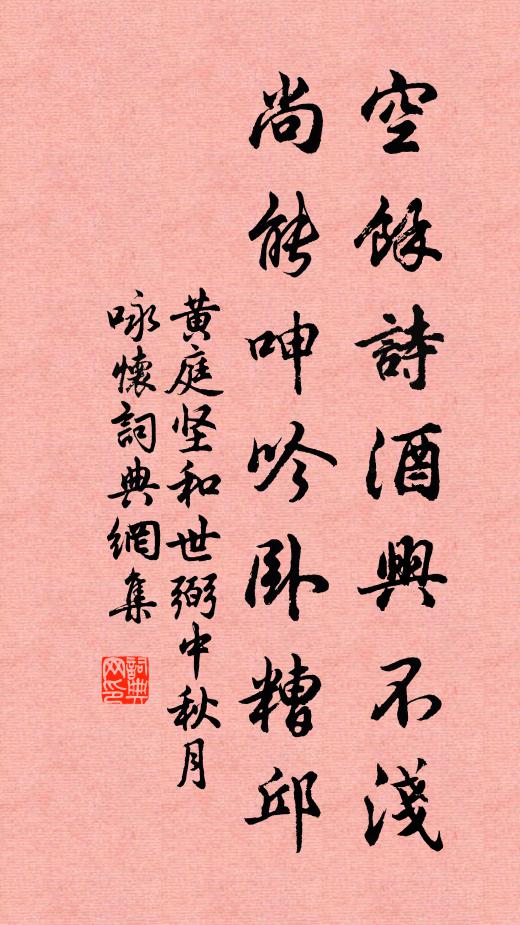 空餘詩酒興不淺
尚能呻吟卧糟邱
黄庭坚和世弼中秋月
咏懷詞典網集
詞典网印